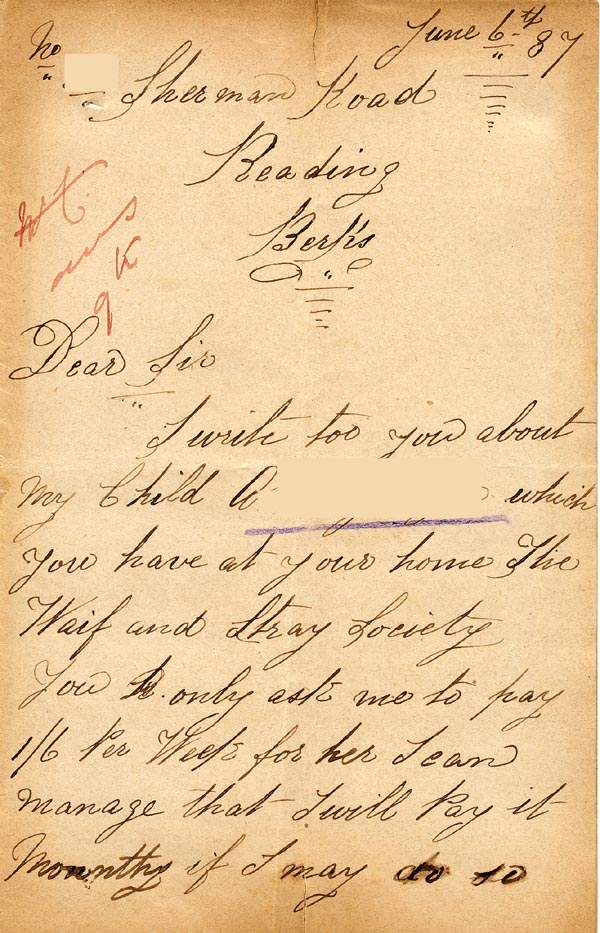 No
June 6th 87
Sherman Road
Reading
Berks
Dear Sir
I write too you about
my Child A which
you have at your home The
Waif and Stray Society
You only ask me to pay
1/6 Per Week for her I can
manage that I will Pay it
Mounthy if I may do so